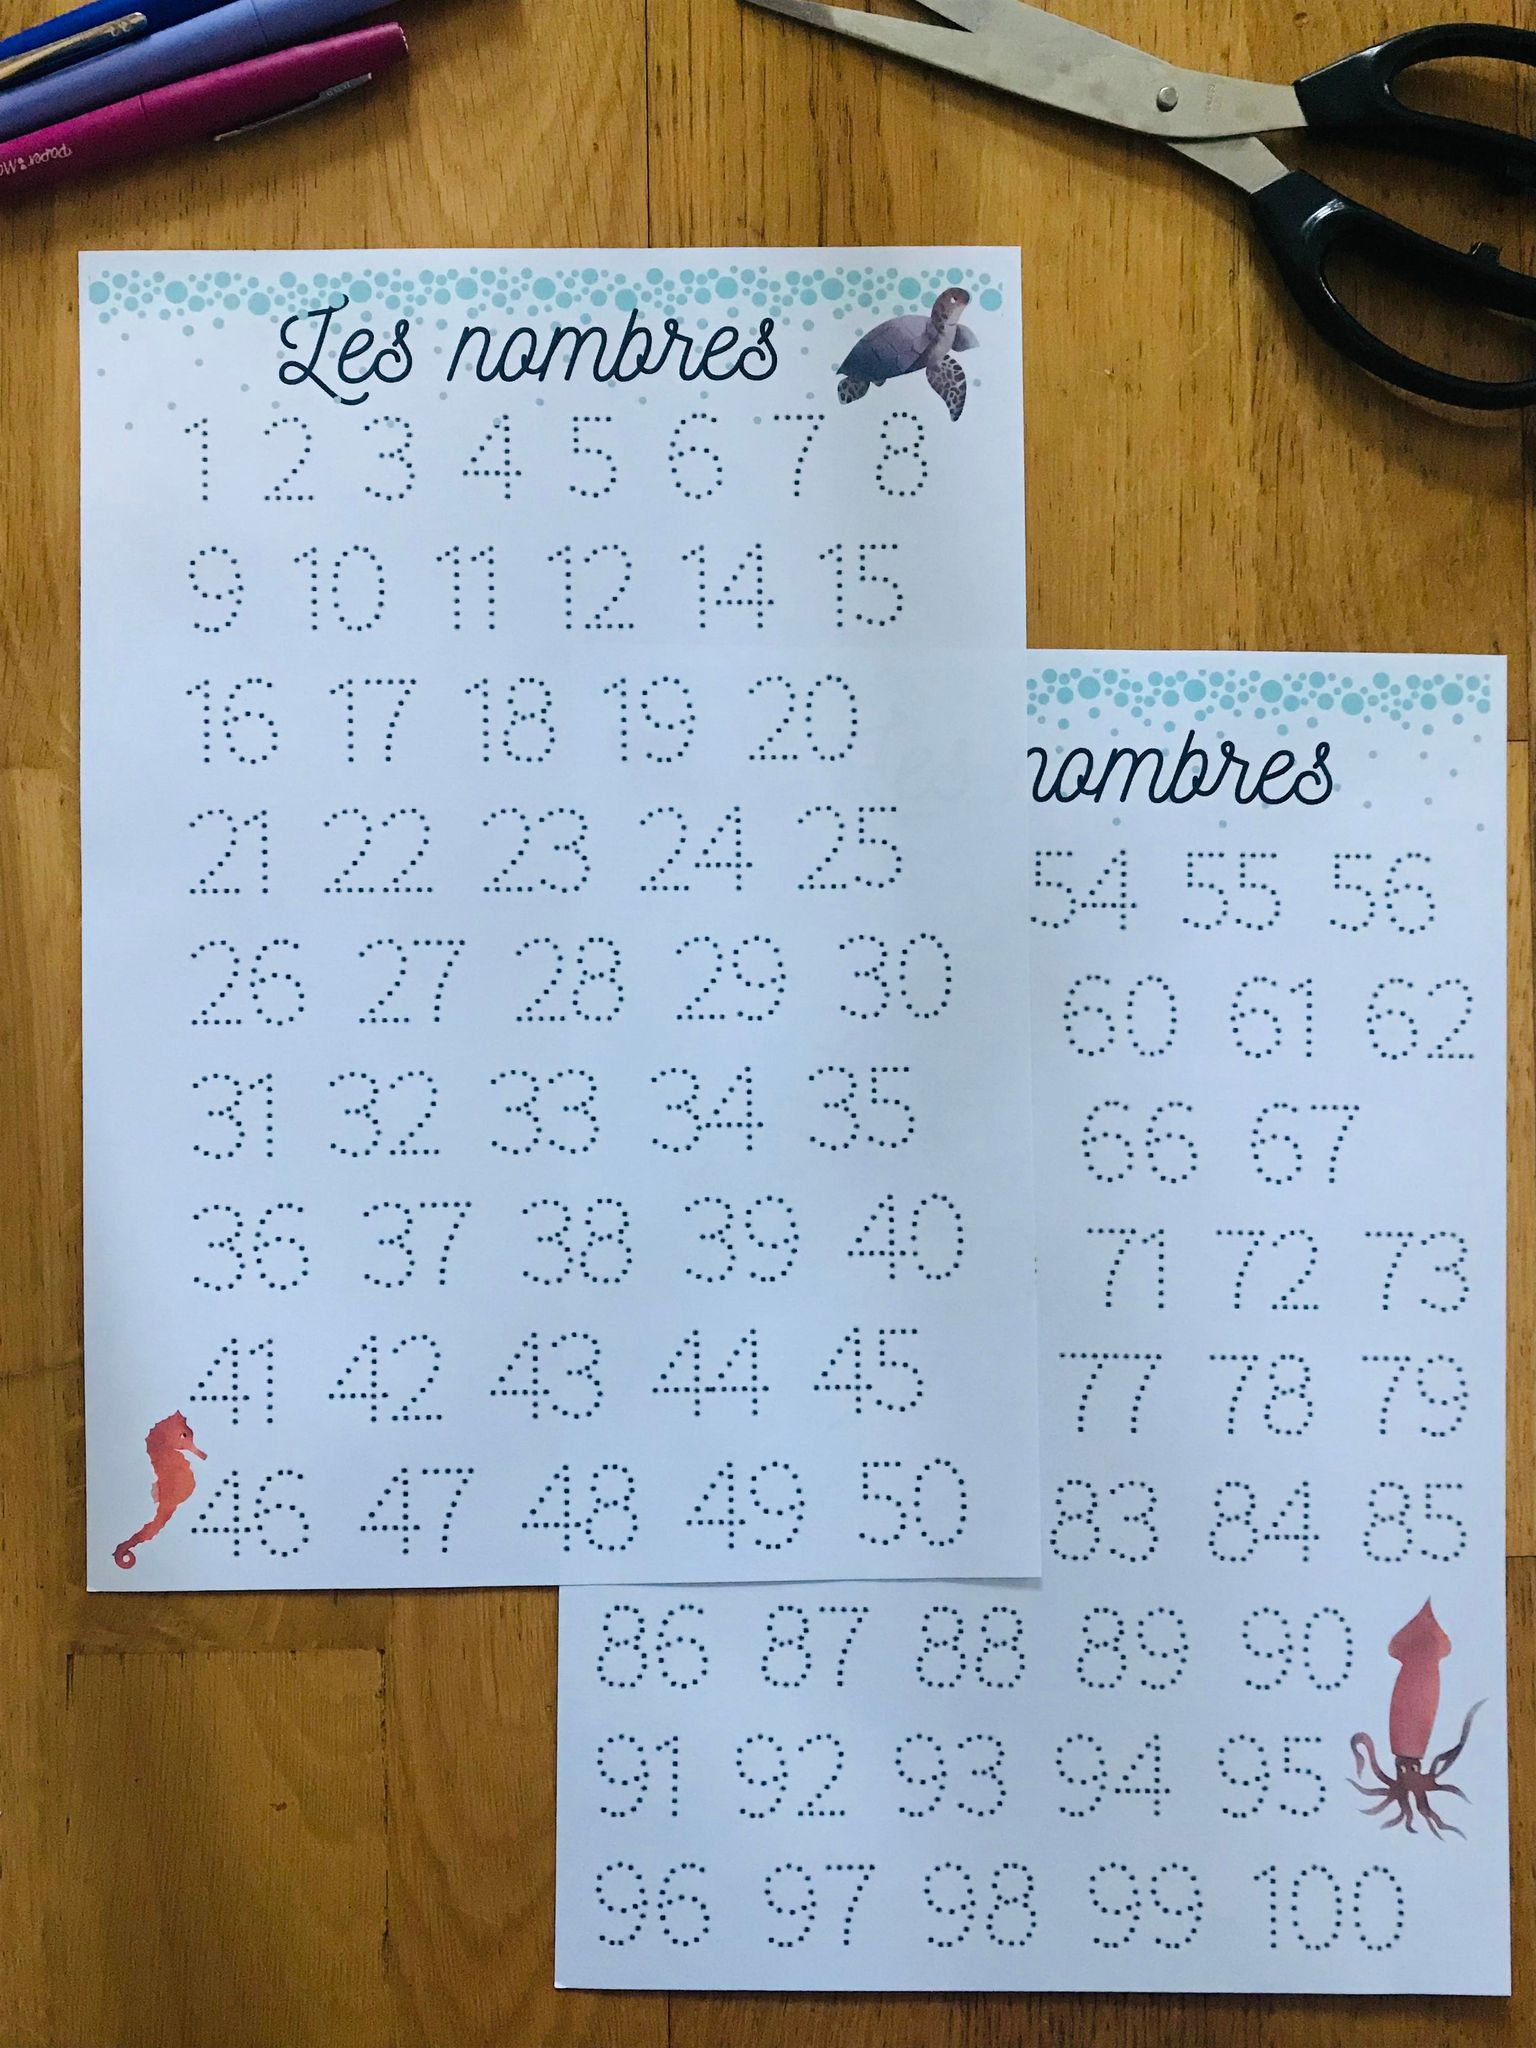 Paper:Ma
Les nombres
1 2 3 4 5 6 7 8
9 10 11 12 14 15
16 17 18 19 20
21 22 23 24 25
26 27 28 29 30
31 32 33 34 35
36 37 38 39 40
41 42 43 44 45
46 47 48 49 50
nombres
54 55 56
60 61 62
66 67
71 72 73
77 78 79
83 84 85
86 87 88 89 90
91 92 93 94 95
96 97 98 99 100